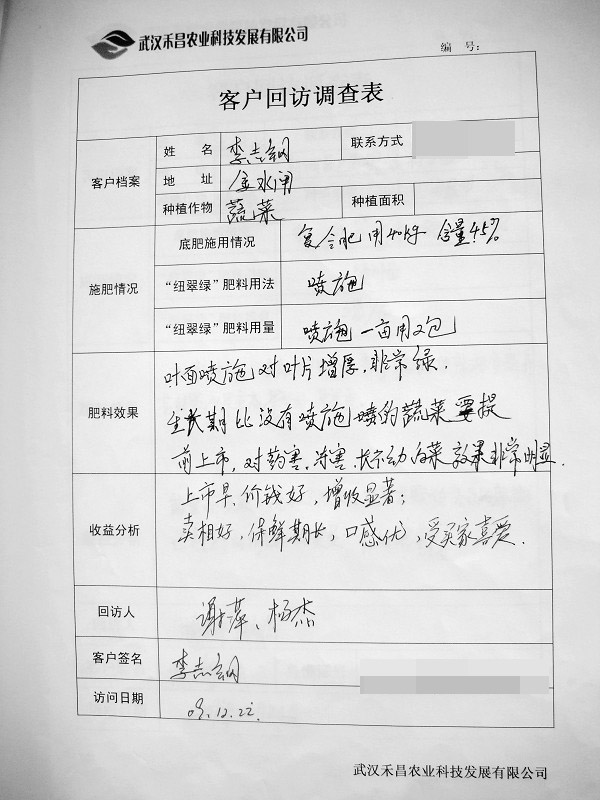 武汉禾昌农业科技发展有限公司
编 号:
客户回访调查表
客户档案
姓 名 李志钢 联系方式
地 址 金水闸
种植作物 蔬菜 种植面积
施肥情况
底肥施用情况 复合肥用40kg 含量45%
“纽翠绿”肥料用法 喷施
“纽翠绿”肥料用量 喷施一亩用2包
肥料效果
叶面喷施对叶片增厚,非常绿.
生长期比没有喷施喷的蔬菜要提
前上市,对药害,冻害,长不动的菜效果非常明显.
收益分析
上市早,价钱好,增收显著;
卖相好,保鲜期长,口感优,受买家喜爱.
回访人 谢萍、杨杰
客户签名 李志钢
访问日期 09.12.22.
武汉禾昌农业科技发展有限公司